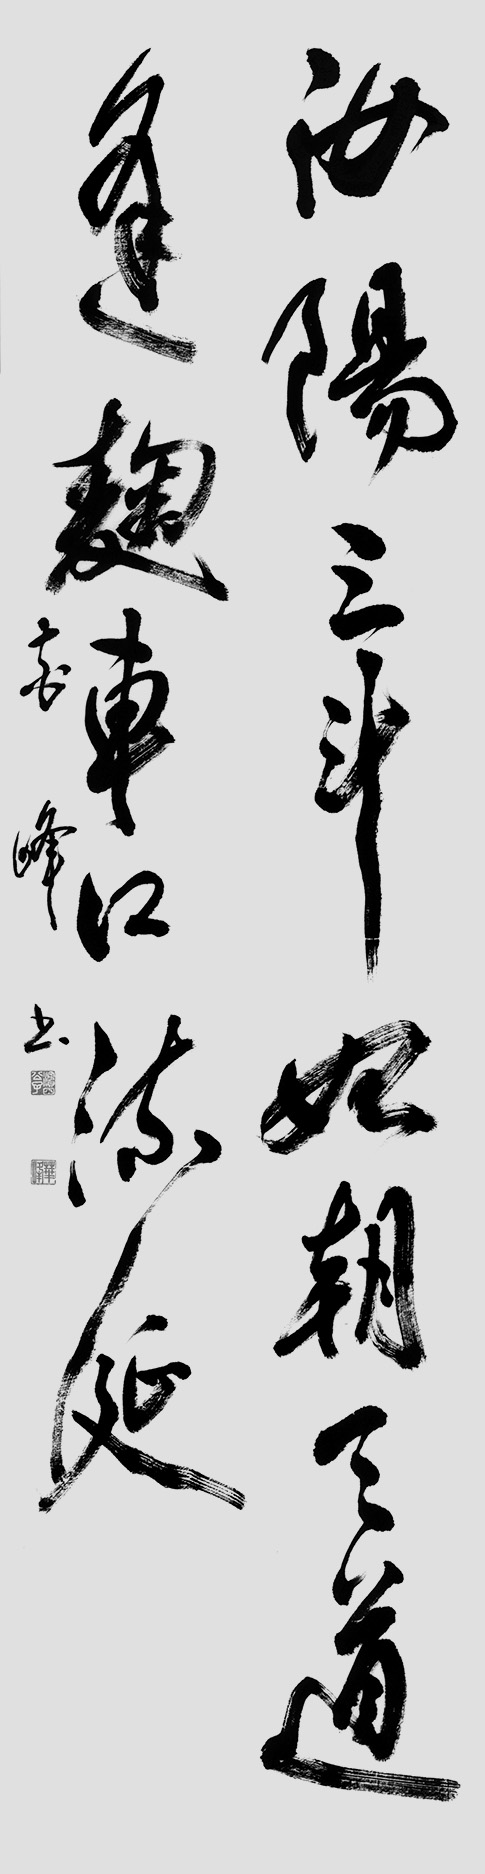 汝陽三斗始朝天道
逢麴車口流涎
峰书